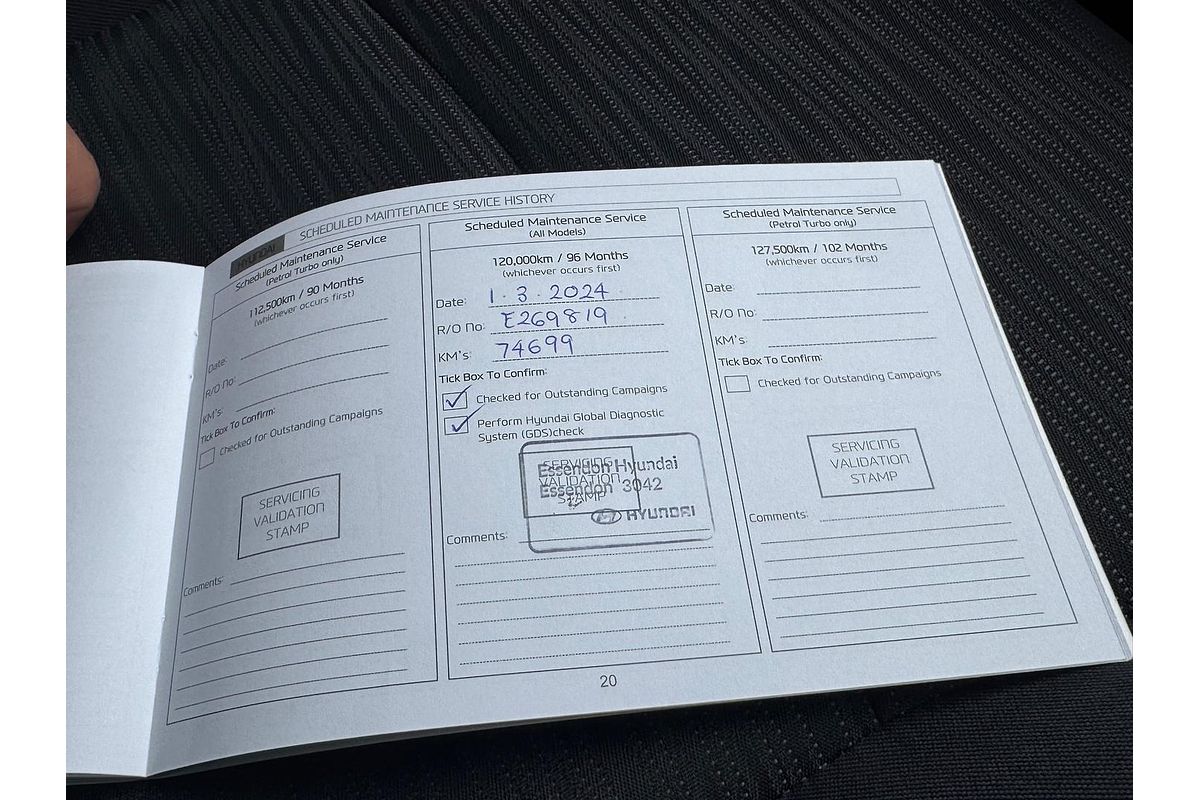 HYUNDAI
SCHEDULED MAINTENANCE SERVICE HISTORY
Scheduled Maintenance Service
(Petrol Turbo only)
112,500km / 90 Months
(whichever occurs first)
Date:
R/O No:
KM's:
Tick Box To Confirm:
Checked for Outstanding Campaigns
SERVICING
VALIDATION
STAMP
Comments:
Scheduled Maintenance Service
(All Models)
120,000km / 96 Months
(whichever occurs first)
Date: 1.3.2024
R/O No: E269819
KM's: 74699
Tick Box To Confirm:
Checked for Outstanding Campaigns
Perform Hyundai Global Diagnostic
System (GDS)check
SERVICING
VALIDATION
STAMP
Essendon Hyundai
Essendon 3042
HYUNDAI
Comments:
Scheduled Maintenance Service
(Petrol Turbo only)
127,500km / 102 Months
(whichever occurs first)
Date:
R/O No:
KM's:
Tick Box To Confirm:
Checked for Outstanding Campaigns
SERVICING
VALIDATION
STAMP
Comments:
20